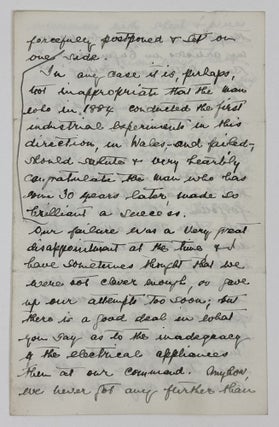 forcefully postponed & set on
one side.
In any case it is, perhaps,
not inappropriate that the man
who in 1884 conducted the first
industrial experiments in this
direction, in Wales, - and failed, -
should salute & very heartily
congratulate the man who has
some 30 years later made so
brilliant a success.
Our failure was a very great
disappointment at the time & I
have sometimes thought that we
were not clever enough, or gave
up our attempts too soon; but
there is a good deal in what
you say as to the inadequacy
of the electrical appliances
then at our command. Anyhow,
we never got any further than